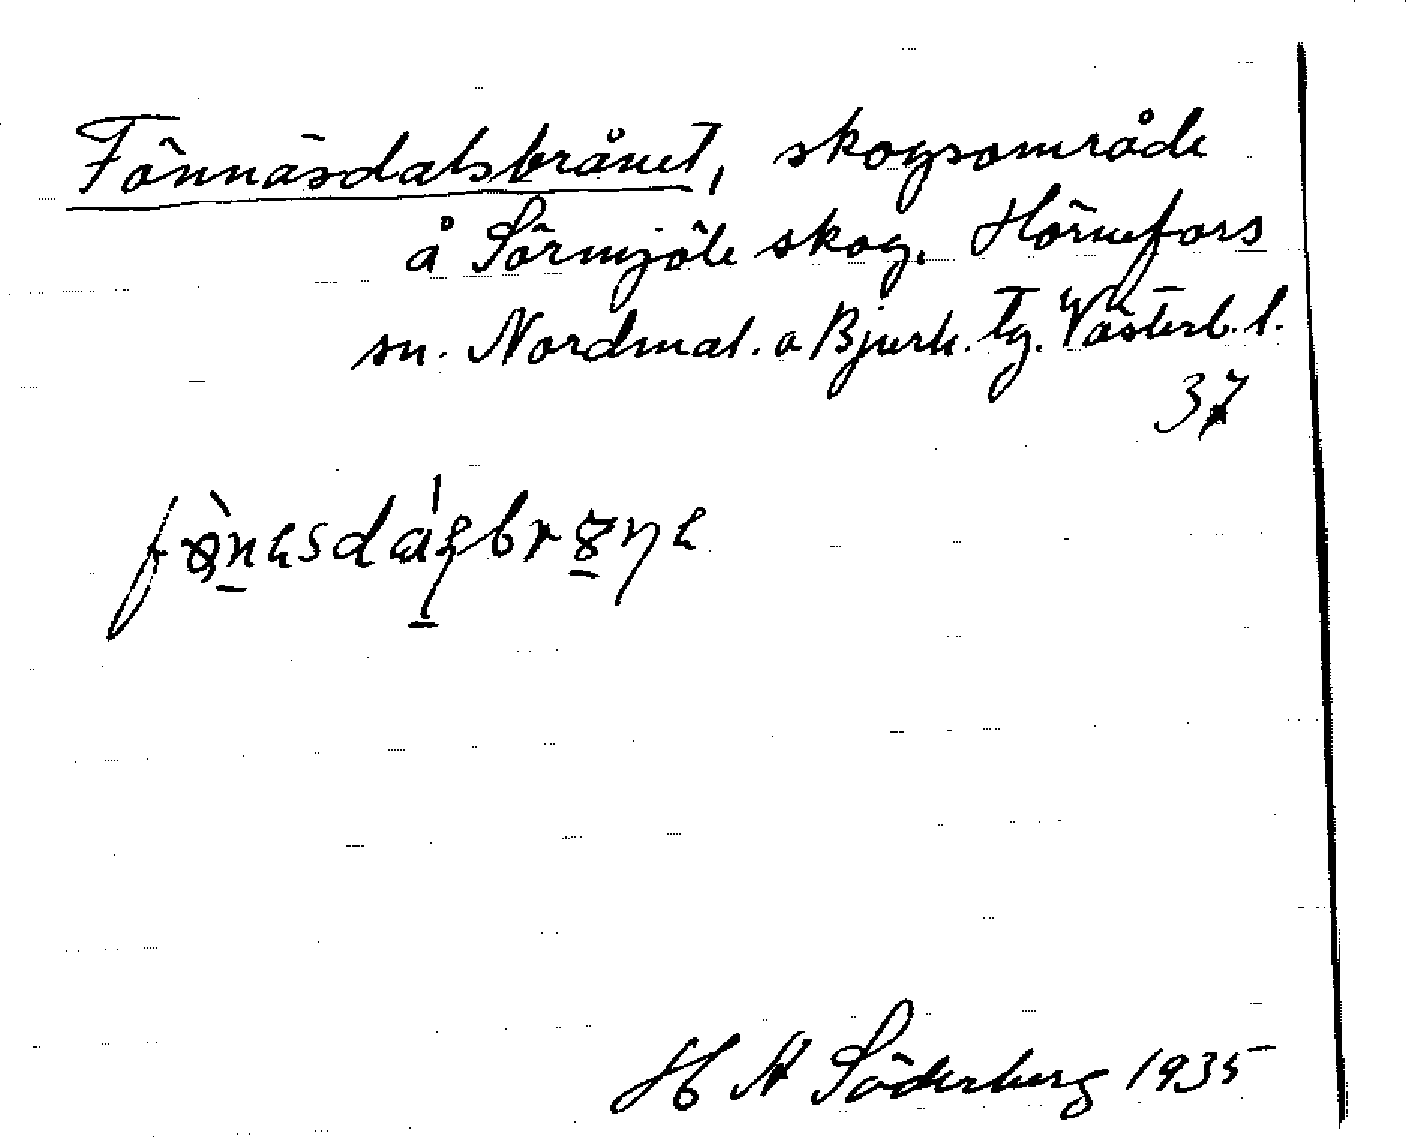 Fönnäsdalsbrånet, skogsområde
å Sörmjöle skog. Hörnefors
sn. Nordmal. o Bjurh. Tg. Västerb. l.
37
H A Söderberg 1935